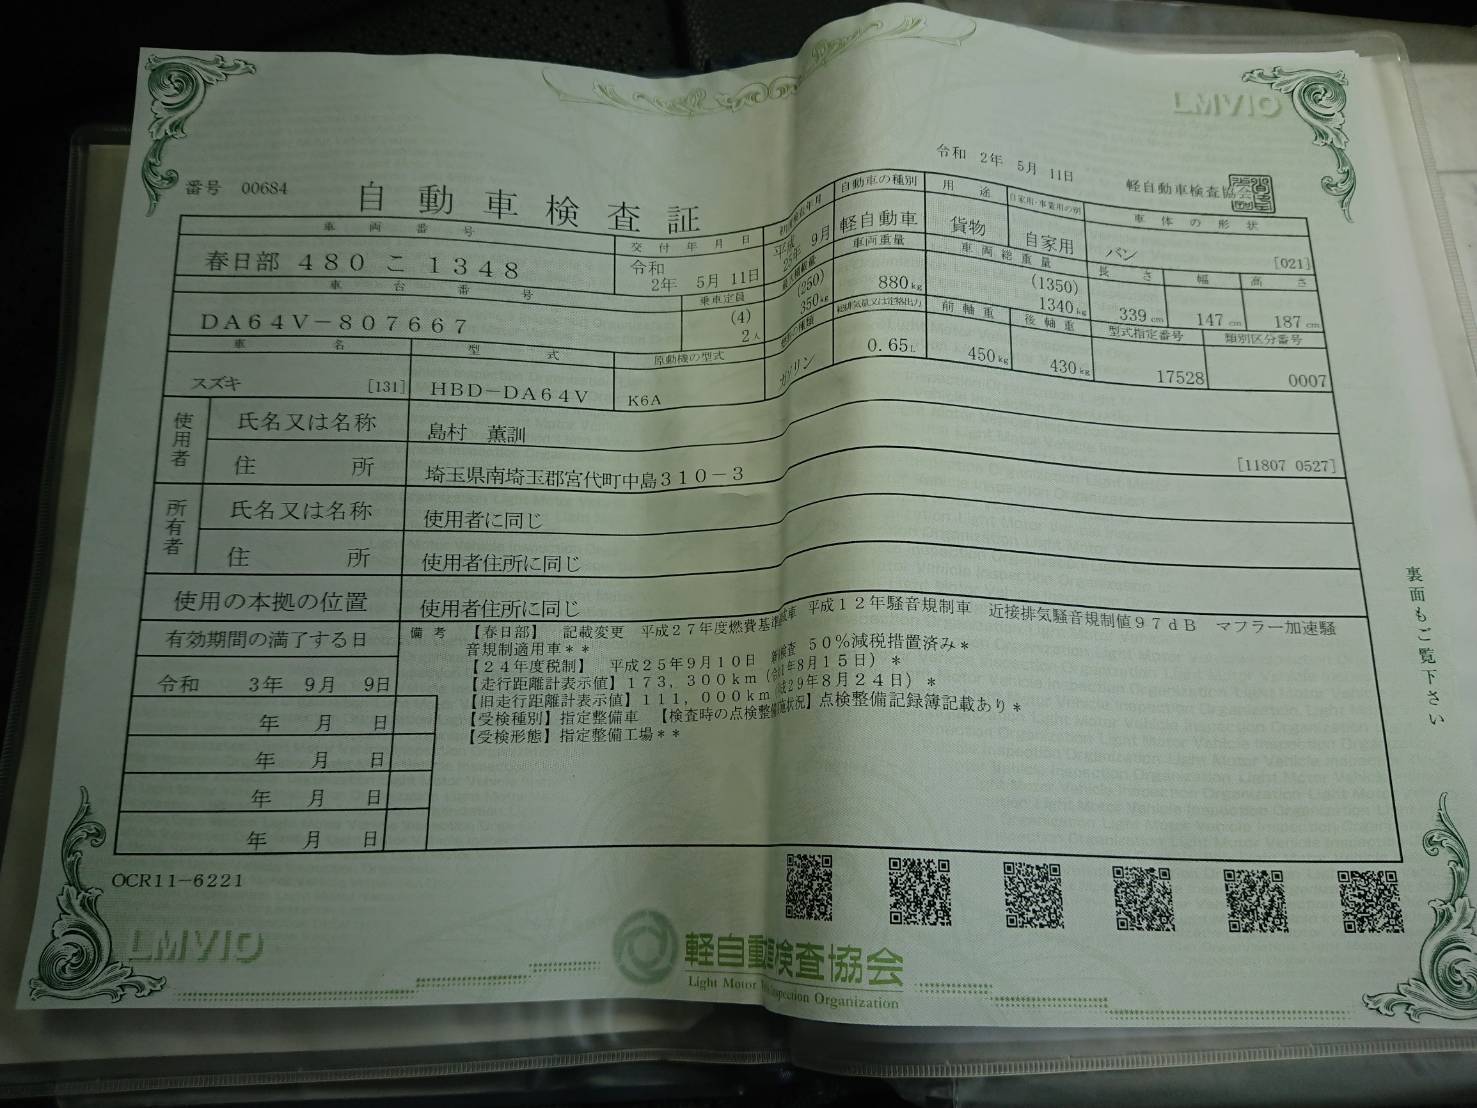 LMVIO
令和 2年 5月 11日
番号 00684
自動車検査証
軽自動車検査協会
車両番号 交付年月日 自動車の種別 用途 自家用・事業用の別 車体の形状
春日部 480 こ 1348 令和 2年 5月 11日 平成 25年 9月 軽自動車 貨物 自家用 バン [021]
車台番号 乗車定員 最大積載量 車両重量 車両総重量 長さ 幅 高さ
DA64V-807667 (4) 2人 (250) 350kg 880kg (1350) 1340kg 339cm 147cm 187cm
車名 型式 原動機の型式 燃料の種類 総排気量又は定格出力 前軸重 後軸重 型式指定番号 類別区分番号
スズキ [131] HBD-DA64V K6A ガソリン 0.65L 450kg 430kg 17528 0007
使用者 氏名又は名称 島村 薫訓
住所 埼玉県南埼玉郡宮代町中島310-3 [11807 0527]
所有者 氏名又は名称 使用者に同じ
住所 使用者住所に同じ
使用の本拠の位置 使用者住所に同じ
有効期間の満了する日
令和 3年 9月 9日
年 月 日
年 月 日
年 月 日
年 月 日
備考 【春日部】 記載変更 平成27年度燃費基準達成車 平成12年騒音規制車 近接排気騒音規制値97dB マフラー加速騒
音規制適用車**
【24年度税制】 平成25年9月10日 新規検査 50%減税措置済み*
【走行距離計表示値】173,300km(令和1年8月15日) *
【旧走行距離計表示値】111,000km(平成29年8月24日) *
【受検種別】指定整備車 【検査時の点検整備実施状況】点検整備記録簿記載あり*
【受検形態】指定整備工場**
裏面もご覧下さい
OCR11-6221
LMVIO
軽自動車検査協会
Light Motor Vehicle Inspection Organization